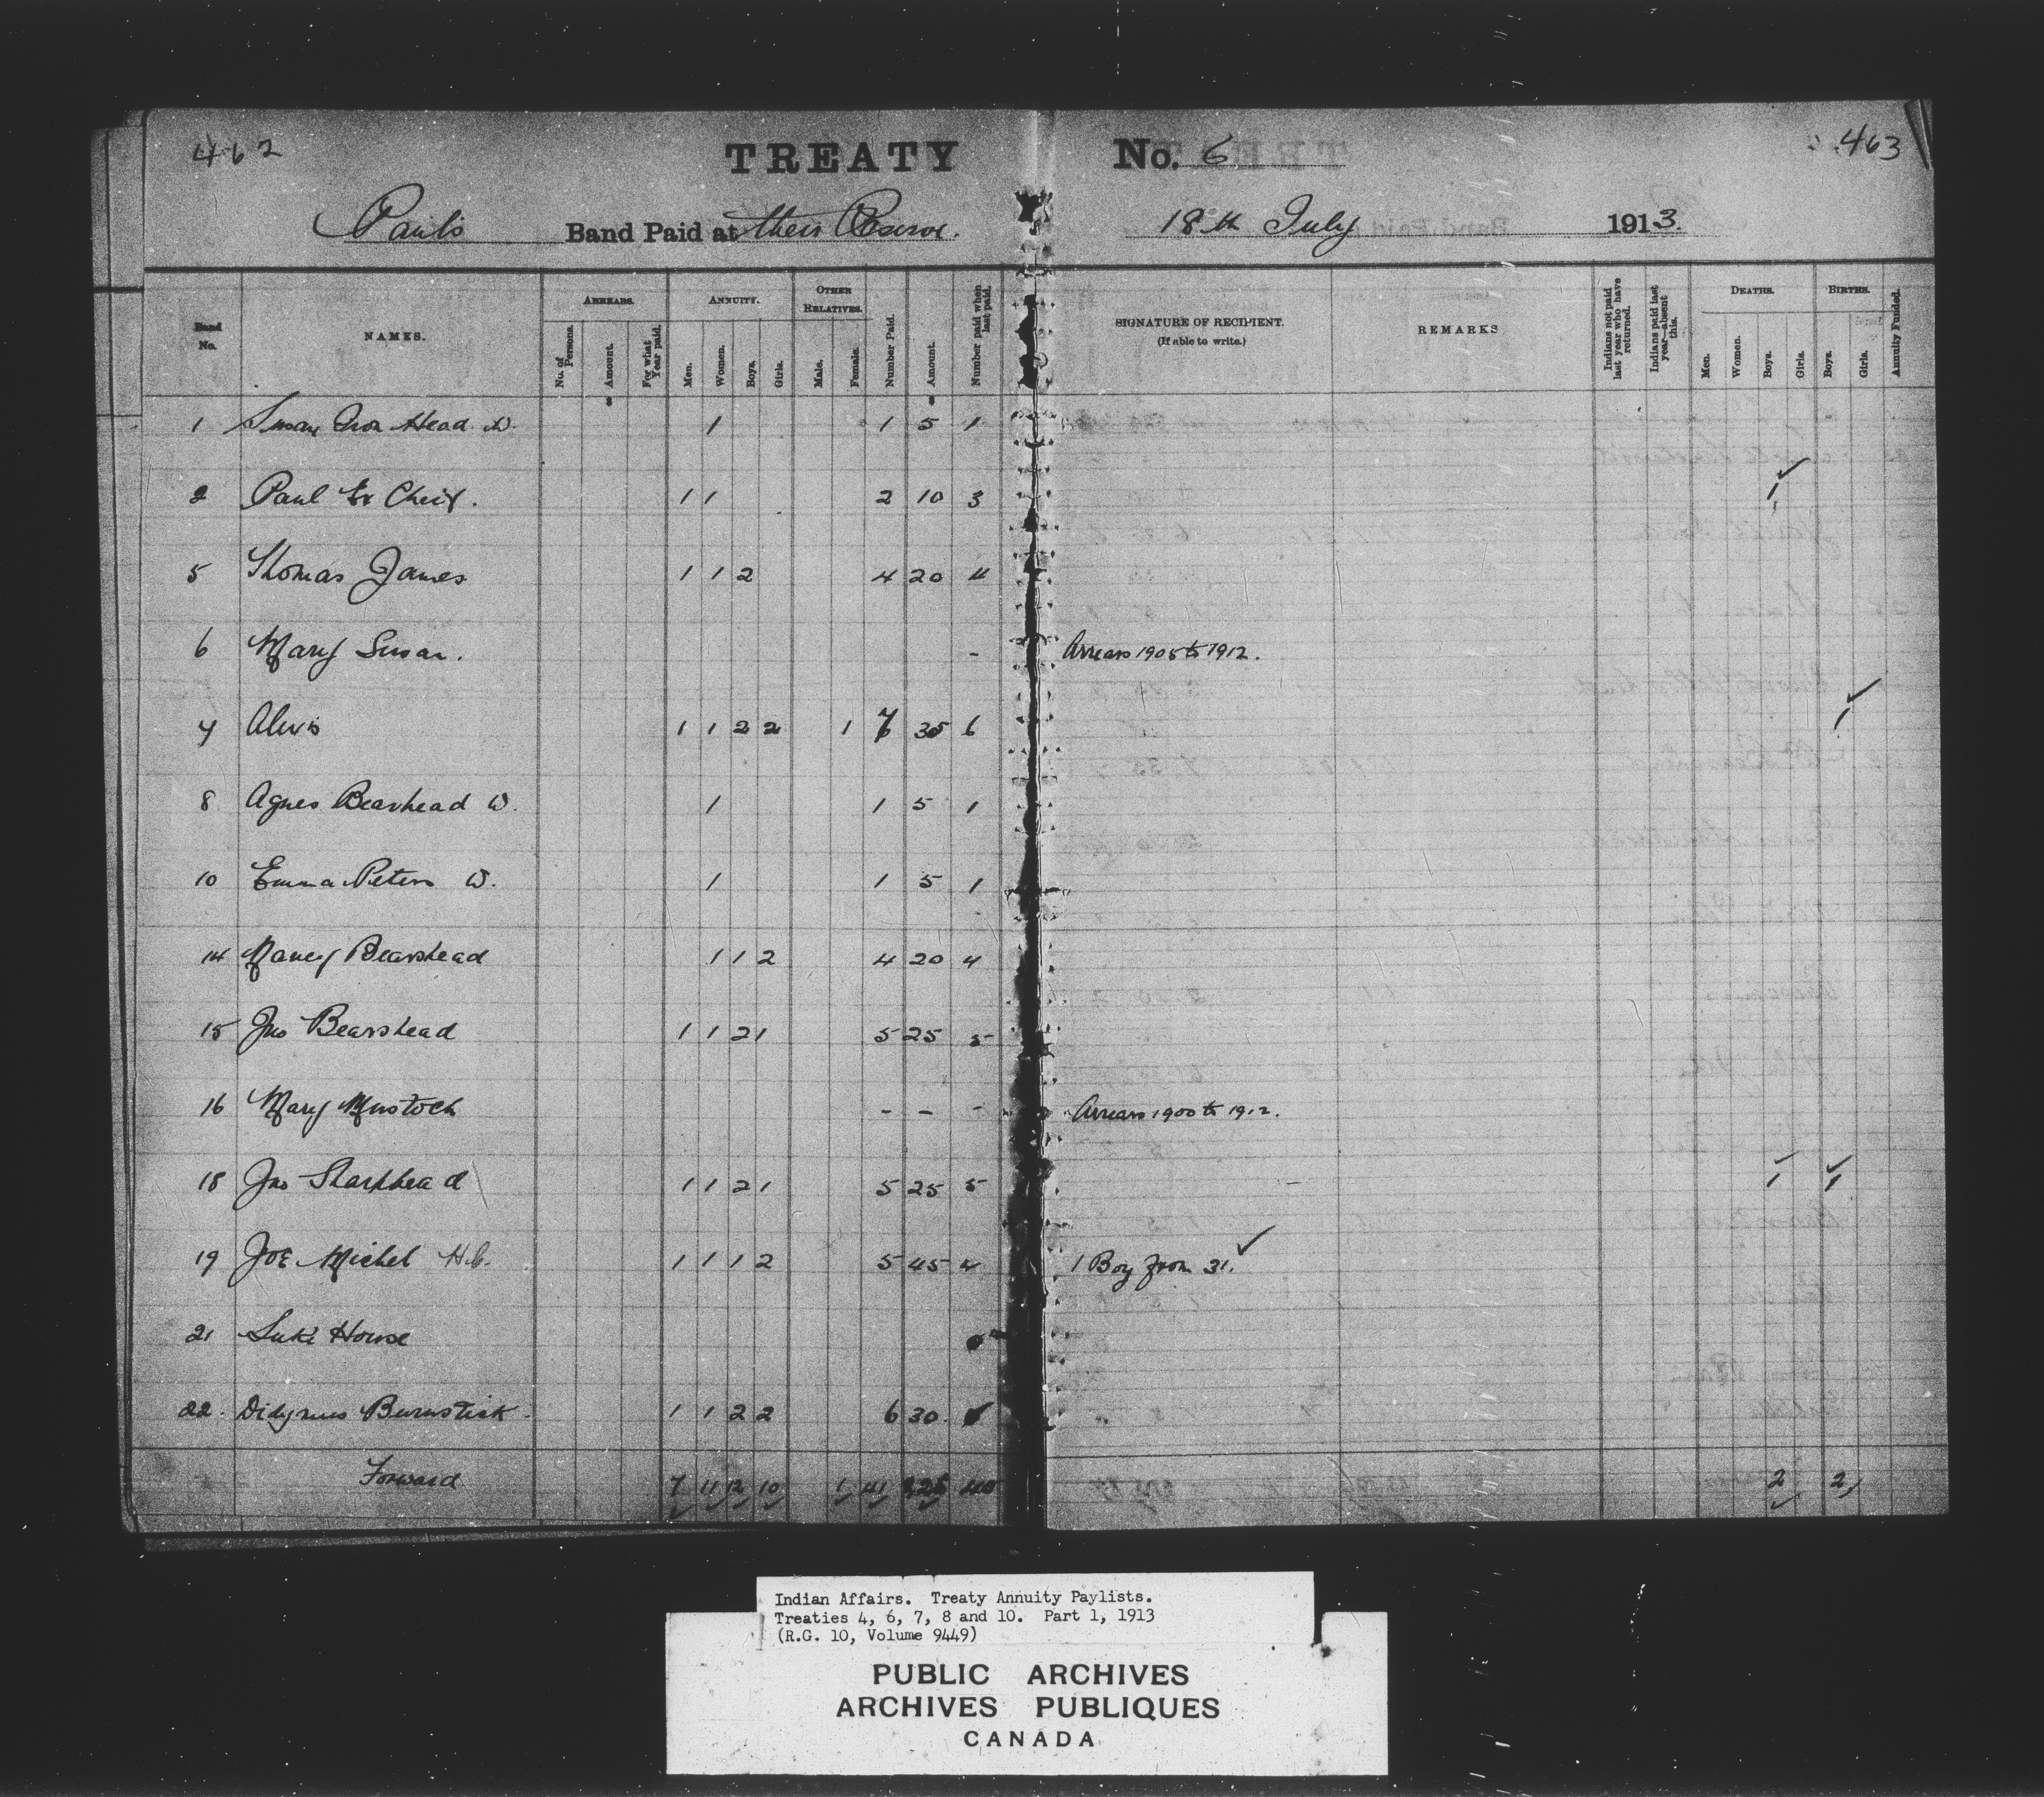 462 TREATY No. 6 463
Paul's Band Paid at their Reserve. 18th July 1913.
Band No. NAMES. ARREARS. No. of Persons. Amount. For what Year paid. ANNUITY. Men. Women. Boys. Girls. OTHER RELATIVES. Male. Female. Number Paid. Amount. Number paid when last paid. SIGNATURE OF RECIPIENT. (If able to write.) REMARKS Indians not paid last year who have returned. Indians paid last year—absent this. DEATHS. Men. Women. Boys. Girls. BIRTHS. Boys. Girls. Annuity Funded.
1 Susan Iron Head W. 1 1 5 1
2 Paul Ex Cheif. 1 1 2 10 3 1
5 Thomas James 1 1 2 4 20 4
6 Mary Susan. - Arrears 1905 to 1912.
7 Alexis 1 1 2 2 1 7 35 6 1
8 Agnes Bearhead W. 1 1 5 1
10 Emma Peters W. 1 1 5 1
14 Nancy Bearshead 1 1 2 4 20 4
15 Jno Bearshead 1 1 2 1 5 25 5
16 Mary - - - Arrears 1900 to 1912.
18 Jno Sharphead 1 1 2 1 5 25 5 1 1
19 Joe Michel H.C. 1 1 1 2 5 45 4 1 Boy from 31.
21 Luke House
22. Didymus Burnstick. 1 1 2 2 6 30.
Forward 7 11 12 10 1 41 225 40 2 2
Indian Affairs. Treaty Annuity Paylists.
Treaties 4, 6, 7, 8 and 10. Part 1, 1913
(R.G. 10, Volume 9449)
PUBLIC ARCHIVES
ARCHIVES PUBLIQUES
CANADA